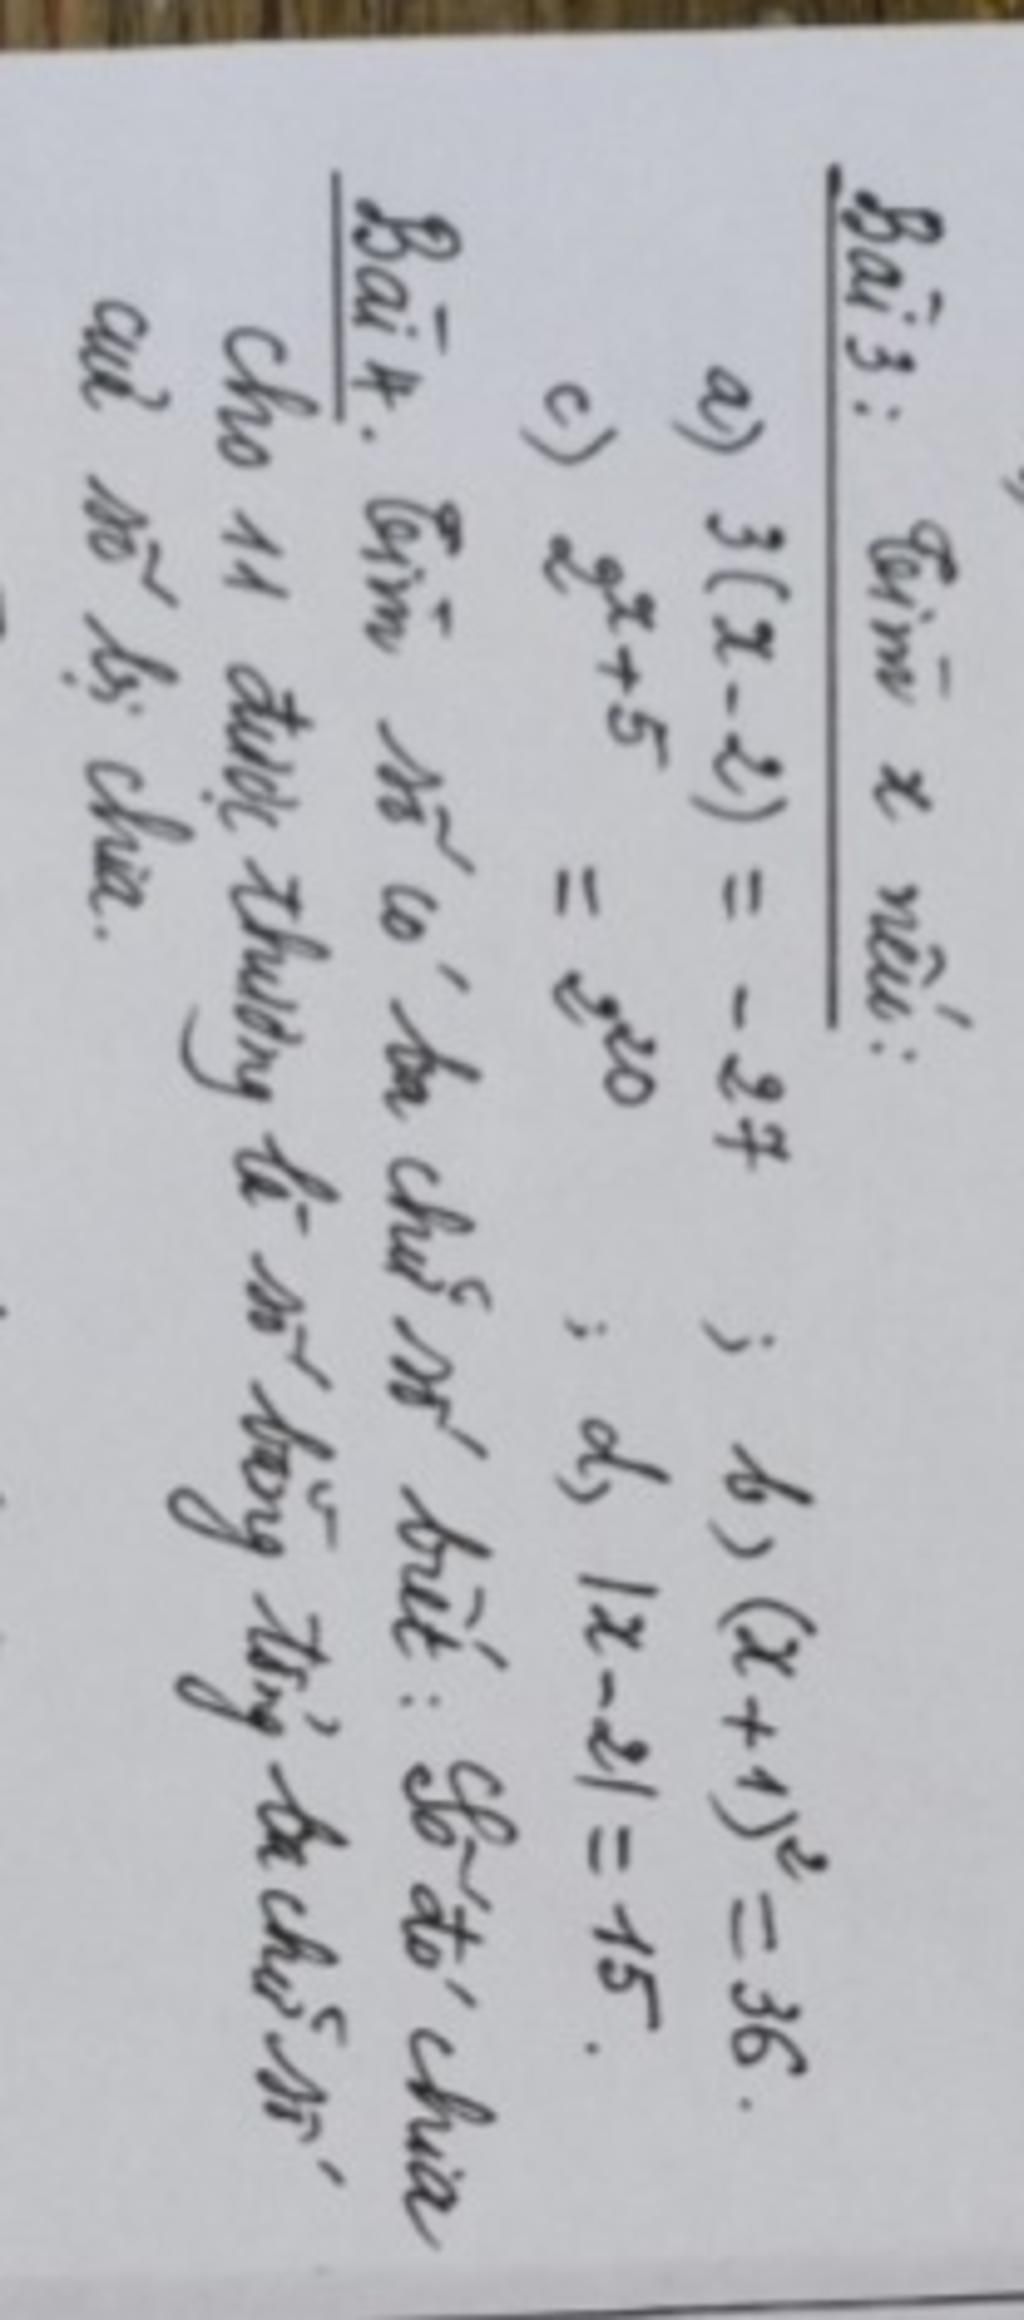 Bài 3: Tìm x nếu:
a) 3(x-2) = -27 ; b) (x+1)² = 36.
c) 2ˣ⁺⁵ = 2²⁰ ; d) |x-2| = 15.
Bài 4. Tìm số có ba chữ số biết: Số đó chia
cho 11 được thương là số bằng tổng ba chữ số
của số bị chia.